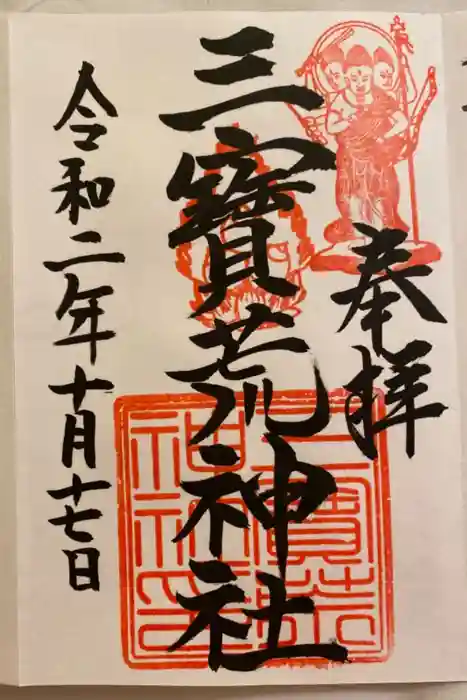 奉拝
三寳荒神社
令和二年十月十七日